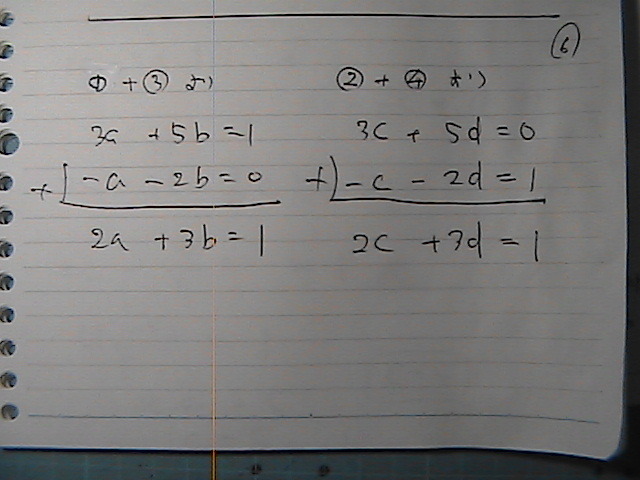 ⑥
① + ③ より
3a + 5b = 1
+) -a - 2b = 0
2a + 3b = 1
② + ④ より
3c + 5d = 0
+) -c - 2d = 1
2c + 3d = 1